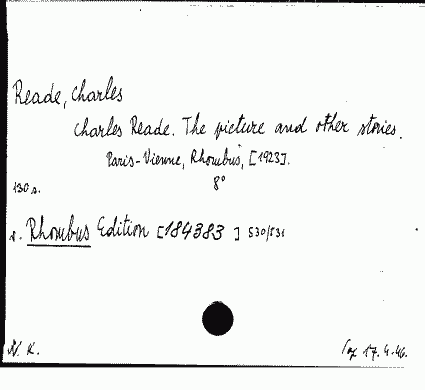 Reade, Charles
Charles Reade. The picture and other stories.
Paris-Vienne, Rhombus, [1923].
130 s. 8°
s. Rhombus Edition [184383 ] 530/531
N. K. 17.4.46.